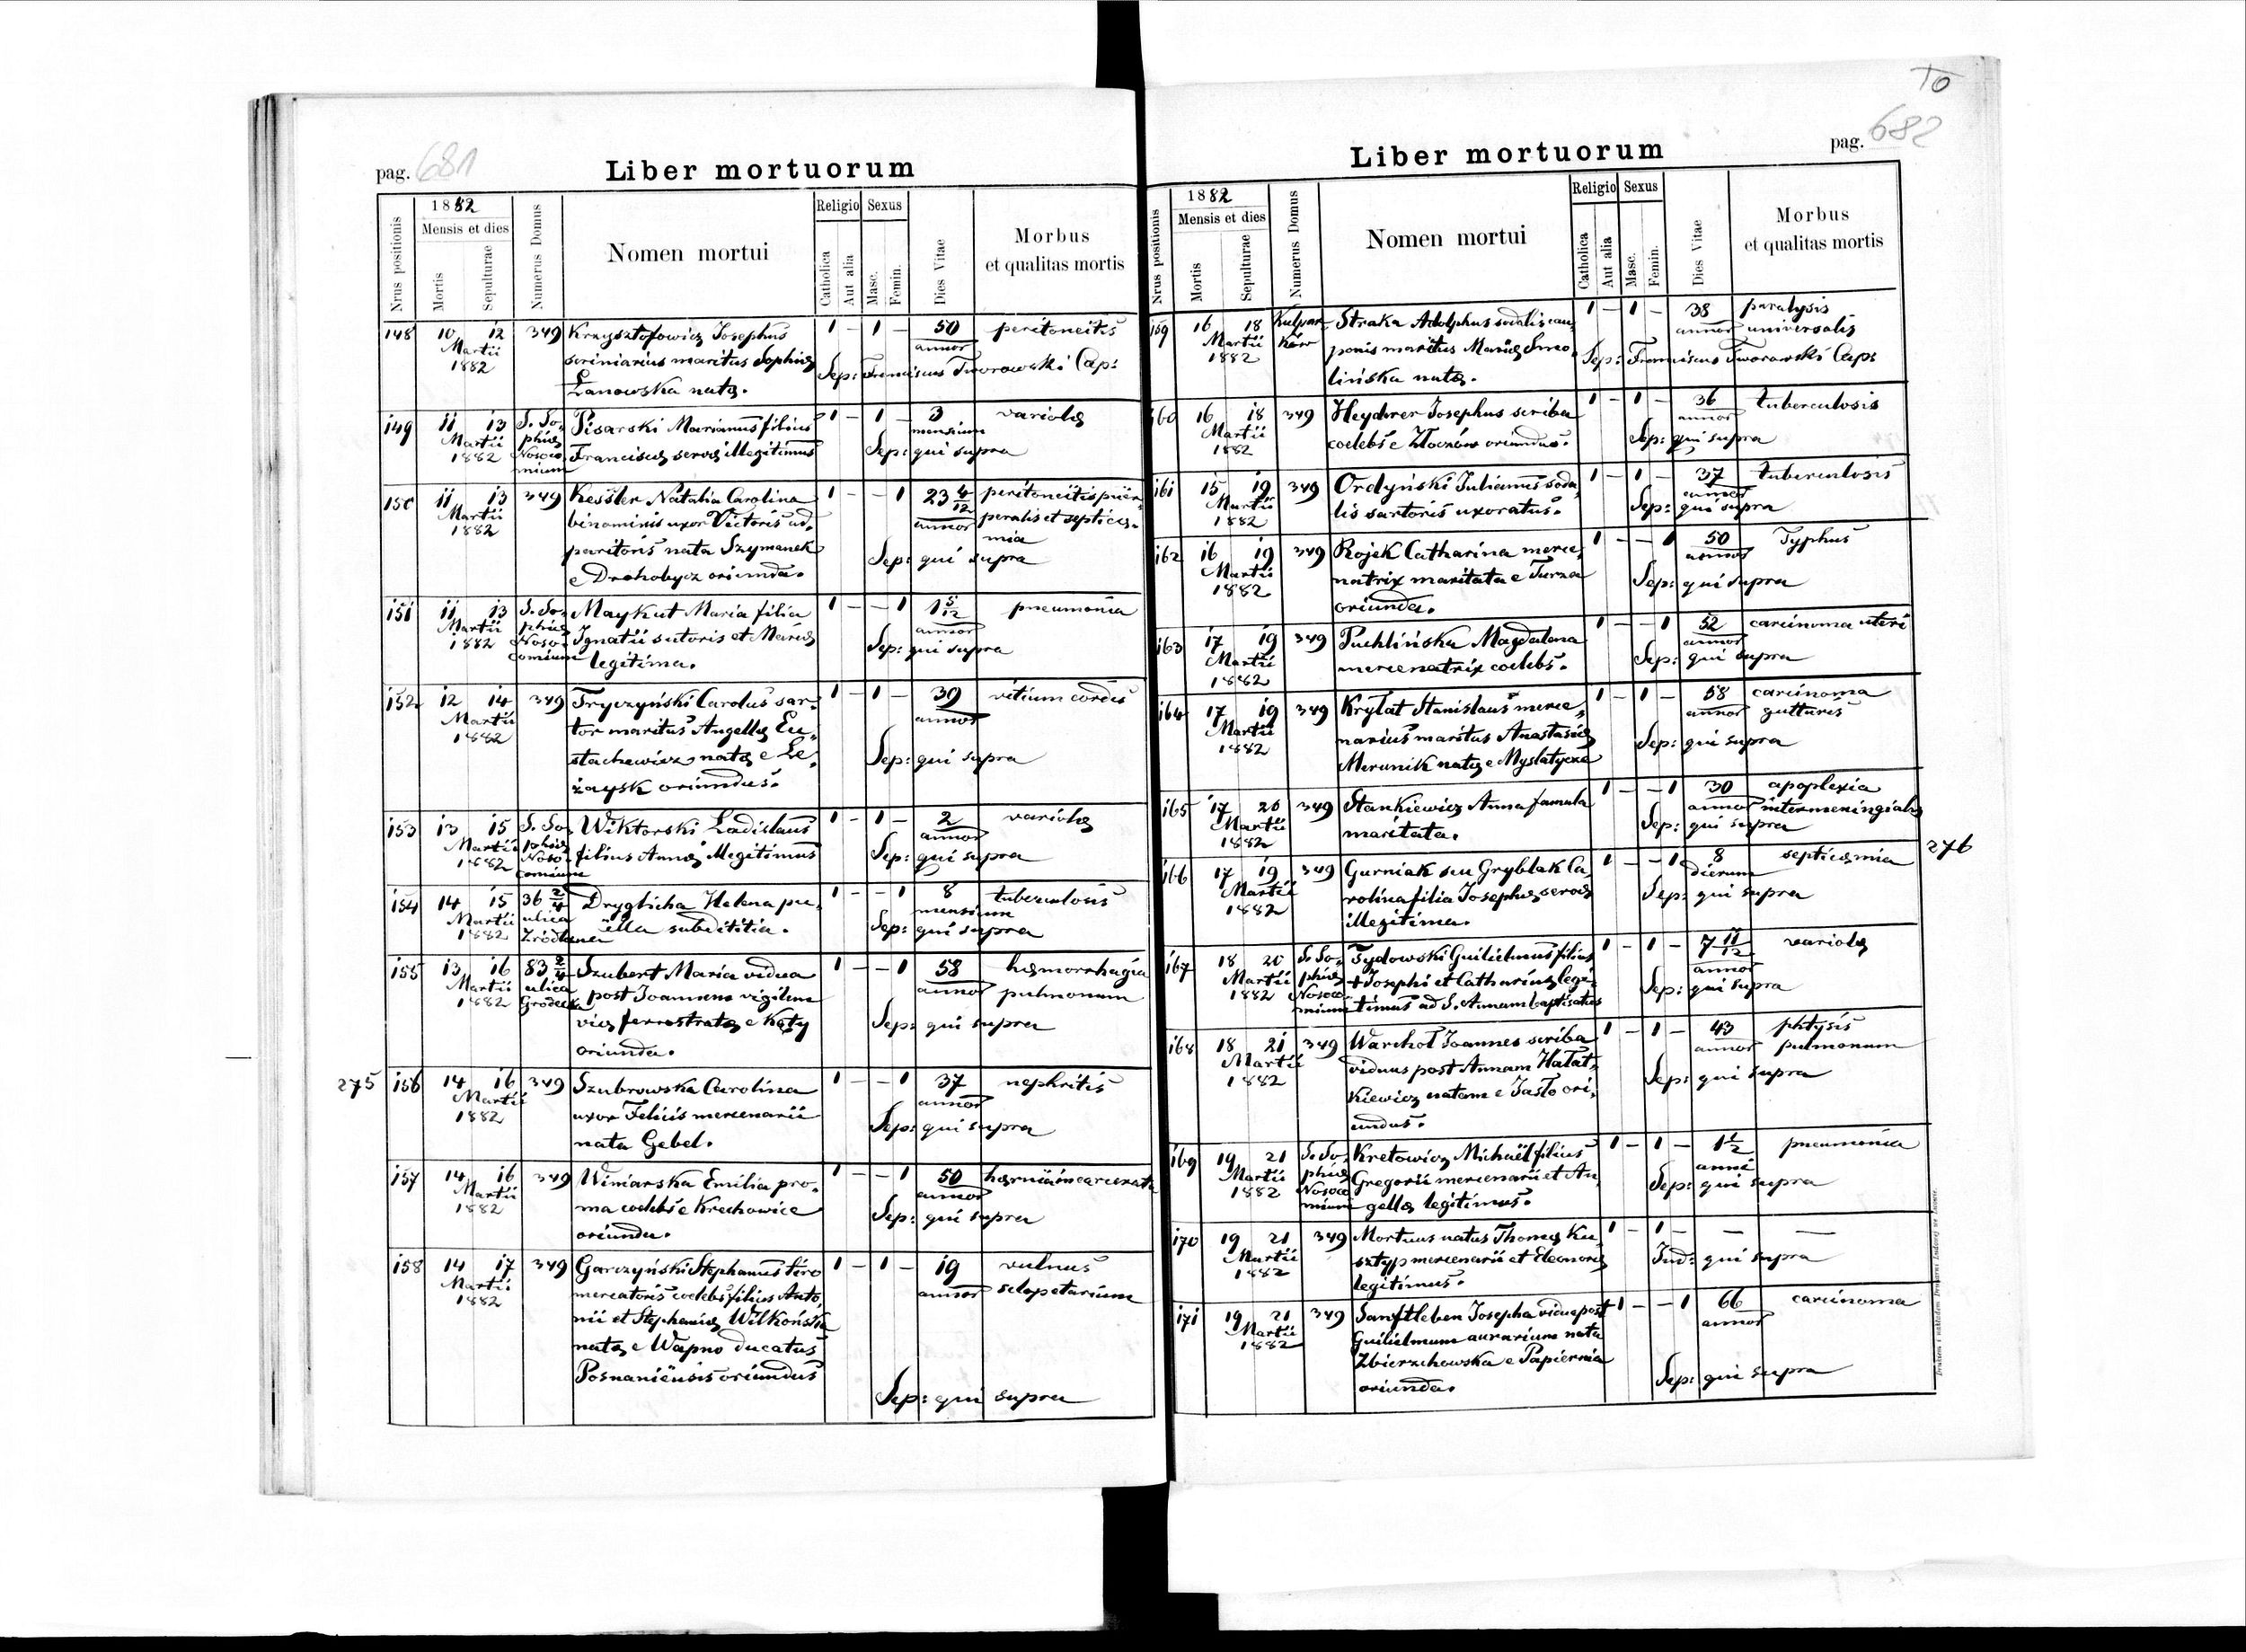 pag. 681
Liber mortuorum
Nrus positionis
1882
Mensis et dies
Mortis
Sepulturae
Numerus Domus
Nomen mortui
Religio
Catholica
Aut alia
Sexus
Masc.
Femin.
Dies Vitae
Morbus
et qualitas mortis
148 10 12 349 Krzysztofowicz Josephus 1 – 1 – 50 peritoneitis
Martii scriniarius maritus Sophiæ annor
1882 Łanowska natæ. Sep: Franciscus Tworowski Cap:
149 11 13 S. So- Pisarski Marianus filius 1 – 1 – 3 variolæ
Martii phiæ Franciscæ servæ illegitimus mensium
1882 Nosoco- Sep: qui supra
mium
150 11 13 349 Kessler Natalia Carolina 1 – – 1 23 4/12 peritoneitis puer-
Martii binominis uxor Victoris ap- annor peralis et septicæ-
1882 paritoris nata Szymanek mia
e Drohobycz oriunda. Sep: qui supra
151 11 13 S. So- Maykut Maria filia 1 – – 1 1 5/12 pneumonia
Martii phiæ Ignatii sutoris et Mariæ annor
1882 Noso- legitima. Sep: qui supra
comium
152 12 14 349 Tryczyński Carolus sar- 1 – 1 – 39 vitium cordis
Martii tor maritus Angellæ Eu- annor
1882 stachewicz natæ e Le- Sep: qui supra
żaysk oriundus.
153 13 15 S. So- Wiktorski Ladislaus 1 – 1 – 2 variolæ
Martii phiæ filius Annæ illegitimus annor
1882 Noso- Sep: qui supra
comium
154 14 15 36 2/4 Dryglicha Helena pu- 1 – – 1 8 tuberculosis
Martii ulica ella subdititia. mensium
1882 Zródlana Sep: qui supra
155 13 16 83 2/4 Szubert Maria vidua 1 – – 1 58 hæmorrhagia
Martii ulica post Joannem vigilem annor pulmonum
1882 Gródecka viæ ferrostratæ e Kęty Sep: qui supra
oriunda.
275 156 14 16 349 Szubrowska Carolina 1 – – 1 37 nephritis
Martii uxor Felicis mercenarii annor
1882 nata Gebel. Sep: qui supra
157 14 16 349 Winiarska Emilia pro- 1 – – 1 50 hærnia incarcerata
Martii ma coelebs e Krechowice annor
1882 oriunda. Sep: qui supra
158 14 17 349 Garczyński Stephanus tiro 1 – 1 – 19 vulnus
Martii mercatoris coelebs filius Anto- annor sclopetarium
1882 nii et Stephaniæ Wilkońska
natæ e Wapno ducatus
Posnaniensis oriundus
Sep: qui supra
TO
Liber mortuorum
pag. 682
Nrus positionis
1882
Mensis et dies
Mortis
Sepulturae
Numerus Domus
Nomen mortui
Religio
Catholica
Aut alia
Sexus
Masc.
Femin.
Dies Vitae
Morbus
et qualitas mortis
159 16 18 Kulpar- Straka Adolphus sodalis cau- 1 – 1 – 38 paralysis
Martii ków ponis maritus Mariæ Smo- annor universalis
1882 lińska natæ. Sep: Franciscus Tworowski Cap:
160 16 18 349 Heydrer Josephus scriba 1 – 1 – 36 tuberculosis
Martii coelebs e Złoczów oriundus. annor
1882 Sep: qui supra
161 15 19 349 Ordyński Julianus soda- 1 – 1 – 37 tuberculosis
Martii lis sartoris uxoratus. annor
1882 Sep: qui supra
162 16 19 349 Rojek Catharina merce- 1 – – 1 50 Typhus
Martii natrix maritata e Turza annor
1882 oriunda. Sep: qui supra
163 17 19 349 Puchlińska Magdalena 1 – – 1 52 carcinoma uteri
Martii mercenatrix coelebs. annor
1882 Sep: qui supra
164 17 19 349 Kryłat Stanislaus merce- 1 – 1 – 58 carcinoma
Martii narius maritus Anastasiæ annor gutturis
1882 Merunik natæ e Mysłatycze Sep: qui supra
165 17 20 349 Stankiewicz Anna famula 1 – – 1 30 apoplexia
Martii maritata. annor intermeningialis
1882 Sep: qui supra
166 17 19 349 Gurniak seu Gryblak Ca- 1 – – 1 8 septicæmia 276
Martii rolina filia Josephæ servæ dierum
1882 illegitima. Sep: qui supra
167 18 20 S. So- Tydowski Guilielmus filius 1 – 1 – 7 11/12 variolæ
Martii phiæ + Josephi et Catharinæ legi- annor
1882 Nosoco- timus ad S. Annam baptisatus Sep: qui supra
mium
168 18 21 349 Warchoł Joannes scriba 1 – 1 – 43 phtysis
Martii viduus post Annam Hałat- annor pulmonum
1882 kiewicz natam e Jasło ori- Sep: qui supra
undus.
169 19 21 S. So- Kretowicz Michaël filius 1 – 1 – 1 1/2 pneumonia
Martii phiæ Gregorii mercenarii et An- anni
1882 Nosoco- gellæ legitimus. Sep: qui supra
mium
170 19 21 349 Mortuus natus Thomæ Ku- 1 – 1 – – –
Martii sztyp mercenarii et Eleonoræ Ind: qui supra
1882 legitimus.
171 19 21 349 Sanftleben Josepha vidua post 1 – – 1 66 carcinoma
Martii Guilielmum aurarium nata annor
1882 Zbierzchowska e Papiernia Sep: qui supra
oriunda.